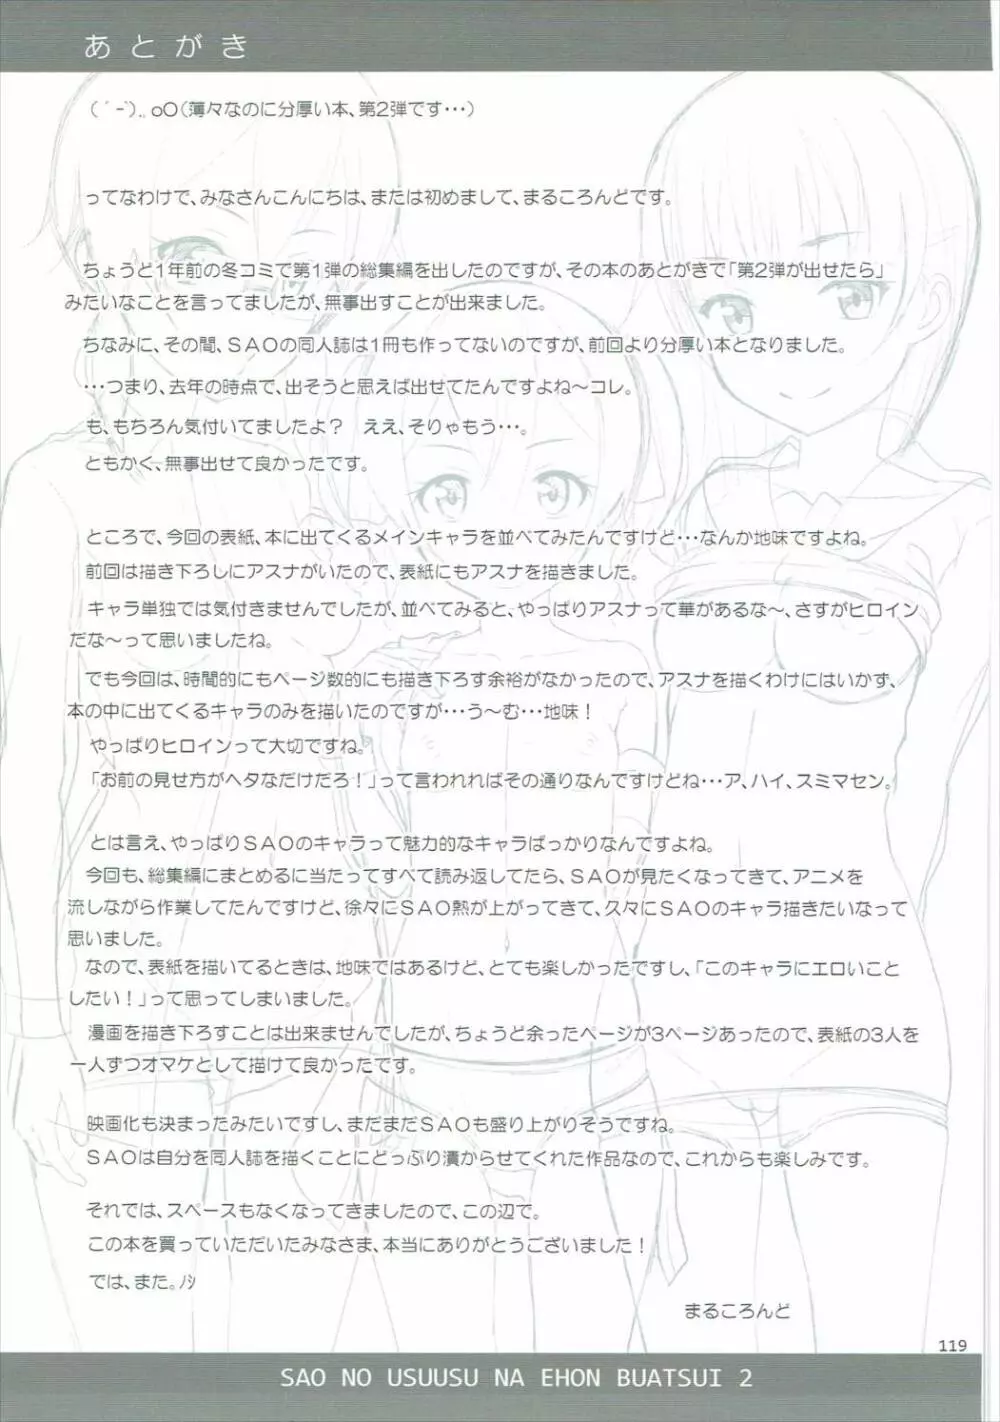 あとがき
( ´ -`).｡oO(薄々なのに分厚い本、第2弾です･･･)
ってなわけで、みなさんこんにちは、または初めまして、まるころんどです。
ちょうど1年前の冬コミで第1弾の総集編を出したのですが、その本のあとがきで「第2弾が出せたら」
みたいなことを言ってましたが、無事出すことが出来ました。
ちなみに、その間、SAOの同人誌は1冊も作ってないのですが、前回より分厚い本となりました。
･･･つまり、去年の時点で、出そうと思えば出せてたんですよね～コレ。
も、もちろん気付いてましたよ？　ええ、そりゃもう･･･。
ともかく、無事出せて良かったです。
ところで、今回の表紙、本に出てくるメインキャラを並べてみたんですけど･･･なんか地味ですよね。
前回は描き下ろしにアスナがいたので、表紙にもアスナを描きました。
キャラ単独では気付きませんでしたが、並べてみると、やっぱりアスナって華があるな～、さすがヒロイン
だな～って思いましたね。
でも今回は、時間的にもページ数的にも描き下ろす余裕がなかったので、アスナを描くわけにはいかず、
本の中に出てくるキャラのみを描いたのですが･･･う～む･･･地味！
やっぱりヒロインって大切ですね。
「お前の見せ方がヘタなだけだろ！」って言われればその通りなんですけどね･･･ア、ハイ、スミマセン。
とは言え、やっぱりSAOのキャラって魅力的なキャラばっかりなんですよね。
今回も、総集編にまとめるに当たってすべて読み返してたら、SAOが見たくなってきて、アニメを
流しながら作業してたんですけど、徐々にSAO熱が上がってきて、久々にSAOのキャラ描きたいなって
思いました。
なので、表紙を描いてるときは、地味ではあるけど、とても楽しかったですし、「このキャラにエロいこと
したい！」って思ってしまいました。
漫画を描き下ろすことは出来ませんでしたが、ちょうど余ったページが3ページあったので、表紙の3人を
一人ずつオマケとして描けて良かったです。
映画化も決まったみたいですし、まだまだSAOも盛り上がりそうですね。
SAOは自分を同人誌を描くことにどっぷり漬からせてくれた作品なので、これからも楽しみです。
それでは、スペースもなくなってきましたので、この辺で。
この本を買っていただいたみなさま、本当にありがとうございました！
では、また。ﾉｼ
まるころんど
119
SAO NO USUUSU NA EHON BUATSUI 2